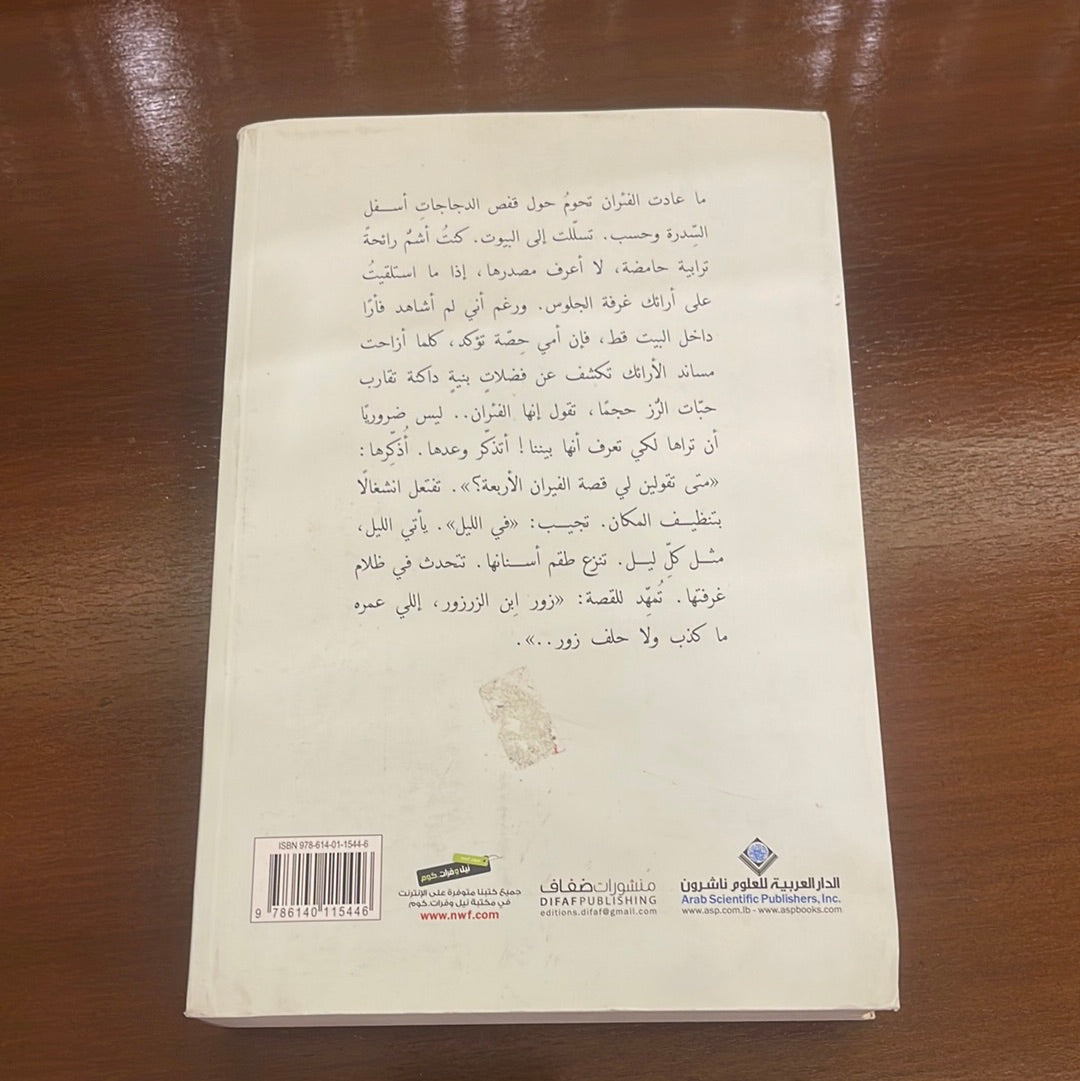 ما عادت الفئران تحومُ حول قفص الدجاجاتِ أسفل
السِّدرة وحسب. تسلّلت إلى البيوت. كنتُ أشمُّ رائحةً
ترابية حامضة، لا أعرف مصدرها، إذا ما استلقيتُ
على أرائك غرفة الجلوس. ورغم أني لم أشاهد فأرًا
داخل البيت قط، فإن أمي حِصّة تؤكد، كلما أزاحت
مساند الأرائك تكشف عن فضلاتٍ بنيةٍ داكنة تقارب
حبّات الرُز حجمًا، تقول إنها الفئران.. ليس ضروريًا
أن تراها لكي تعرف أنها بيننا! أتذكّر وعدها. أُذكِّرها:
«متى تقولين لي قصة الفيران الأربعة؟». تفتعل انشغالًا
بتنظيف المكان. تجيب: «في الليل». يأتي الليل،
مثل كلِّ ليل. تنزع طقم أسنانها. تتحدث في ظلام
غرفتها. تُمهِّد للقصة: «زور اِبن الزرزور، إللي عمره
ما كذب ولا حلف زور..».
ISBN 978-614-01-1544-6
9 786140 115446
نيل وفرات.كوم
جميع كتبنا متوفرة على الإنترنت
في مكتبة نيل وفرات.كوم
www.nwf.com
منشورات ضفاف
DIFAF PUBLISHING
editions.difaf@gmail.com
الدار العربية للعلوم ناشرون
Arab Scientific Publishers, Inc.
www.asp.com.lb - www.aspbooks.com